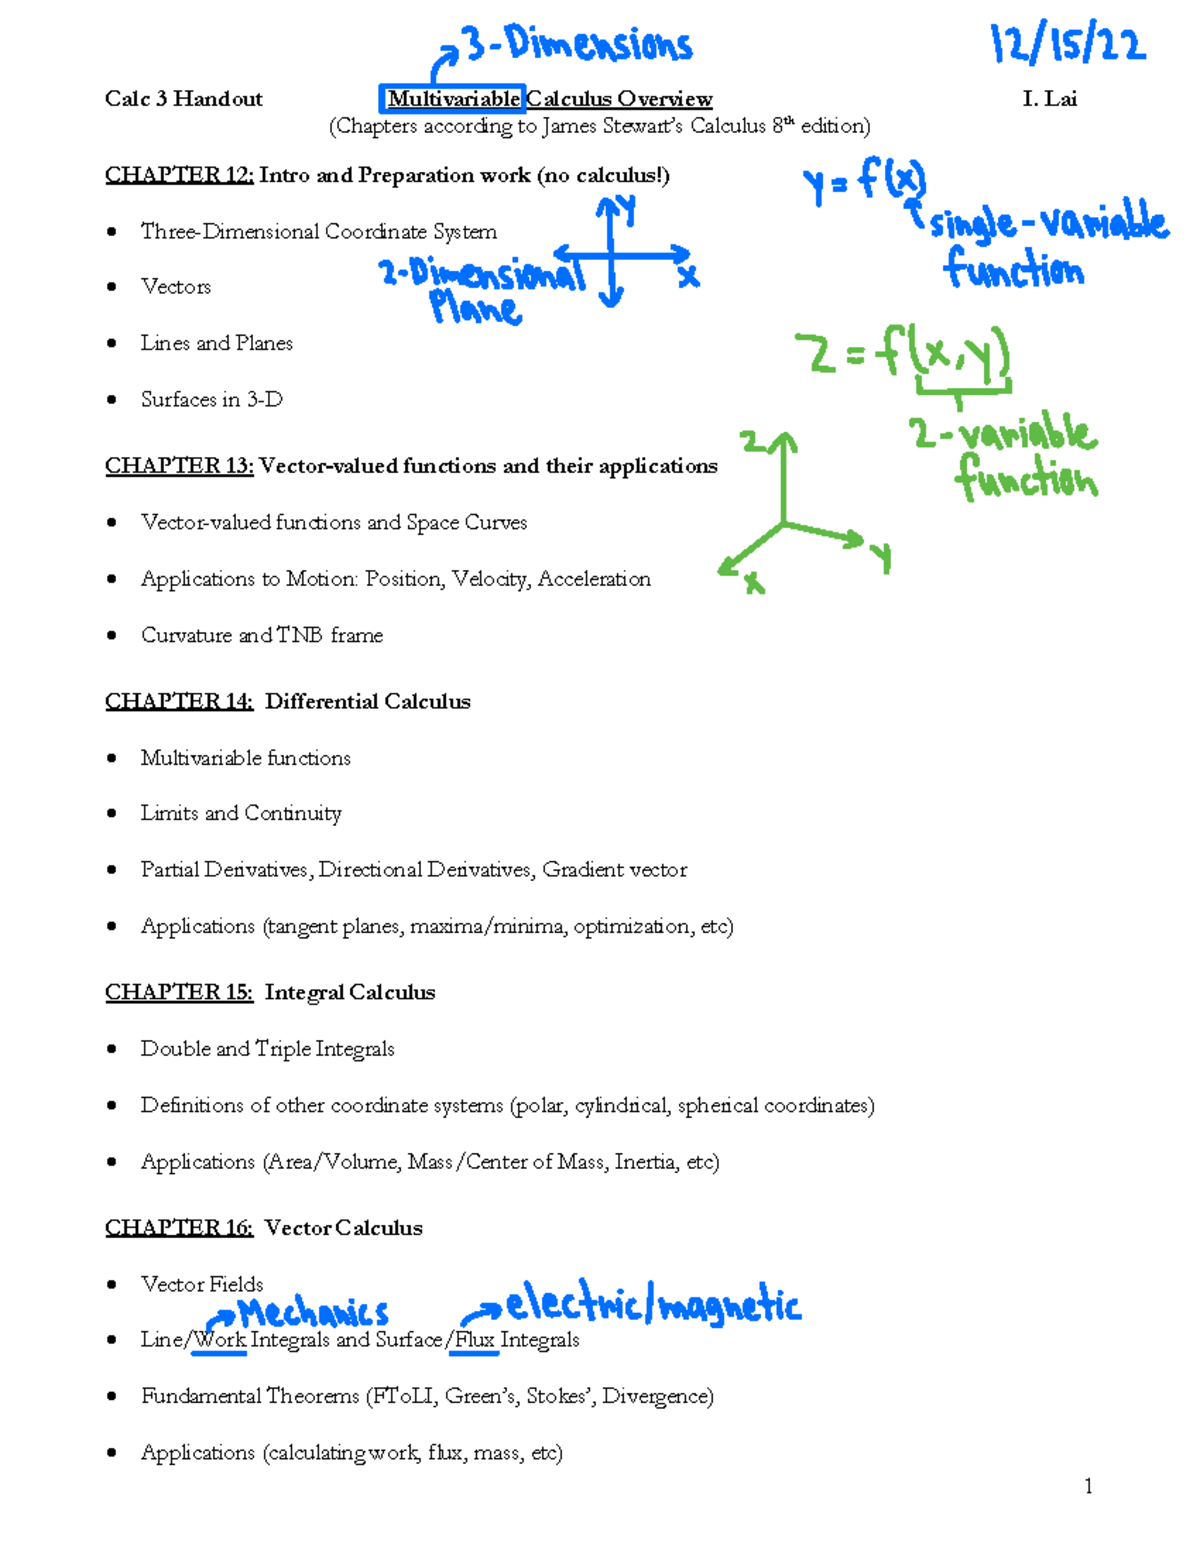 3-Dimensions
12/15/22
Calc 3 Handout Multivariable Calculus Overview I. Lai
(Chapters according to James Stewart's Calculus 8th edition)
CHAPTER 12: Intro and Preparation work (no calculus!)
y = f(x)
single-variable
function
• Three-Dimensional Coordinate System
y
x
2-Dimensional
Plane
• Vectors
• Lines and Planes
z = f(x,y)
2-variable
function
• Surfaces in 3-D
CHAPTER 13: Vector-valued functions and their applications
z
y
x
• Vector-valued functions and Space Curves
• Applications to Motion: Position, Velocity, Acceleration
• Curvature and TNB frame
CHAPTER 14: Differential Calculus
• Multivariable functions
• Limits and Continuity
• Partial Derivatives, Directional Derivatives, Gradient vector
• Applications (tangent planes, maxima/minima, optimization, etc)
CHAPTER 15: Integral Calculus
• Double and Triple Integrals
• Definitions of other coordinate systems (polar, cylindrical, spherical coordinates)
• Applications (Area/Volume, Mass/Center of Mass, Inertia, etc)
CHAPTER 16: Vector Calculus
• Vector Fields
Mechanics
electric/magnetic
• Line/Work Integrals and Surface/Flux Integrals
• Fundamental Theorems (FToLI, Green's, Stokes', Divergence)
• Applications (calculating work, flux, mass, etc)
1